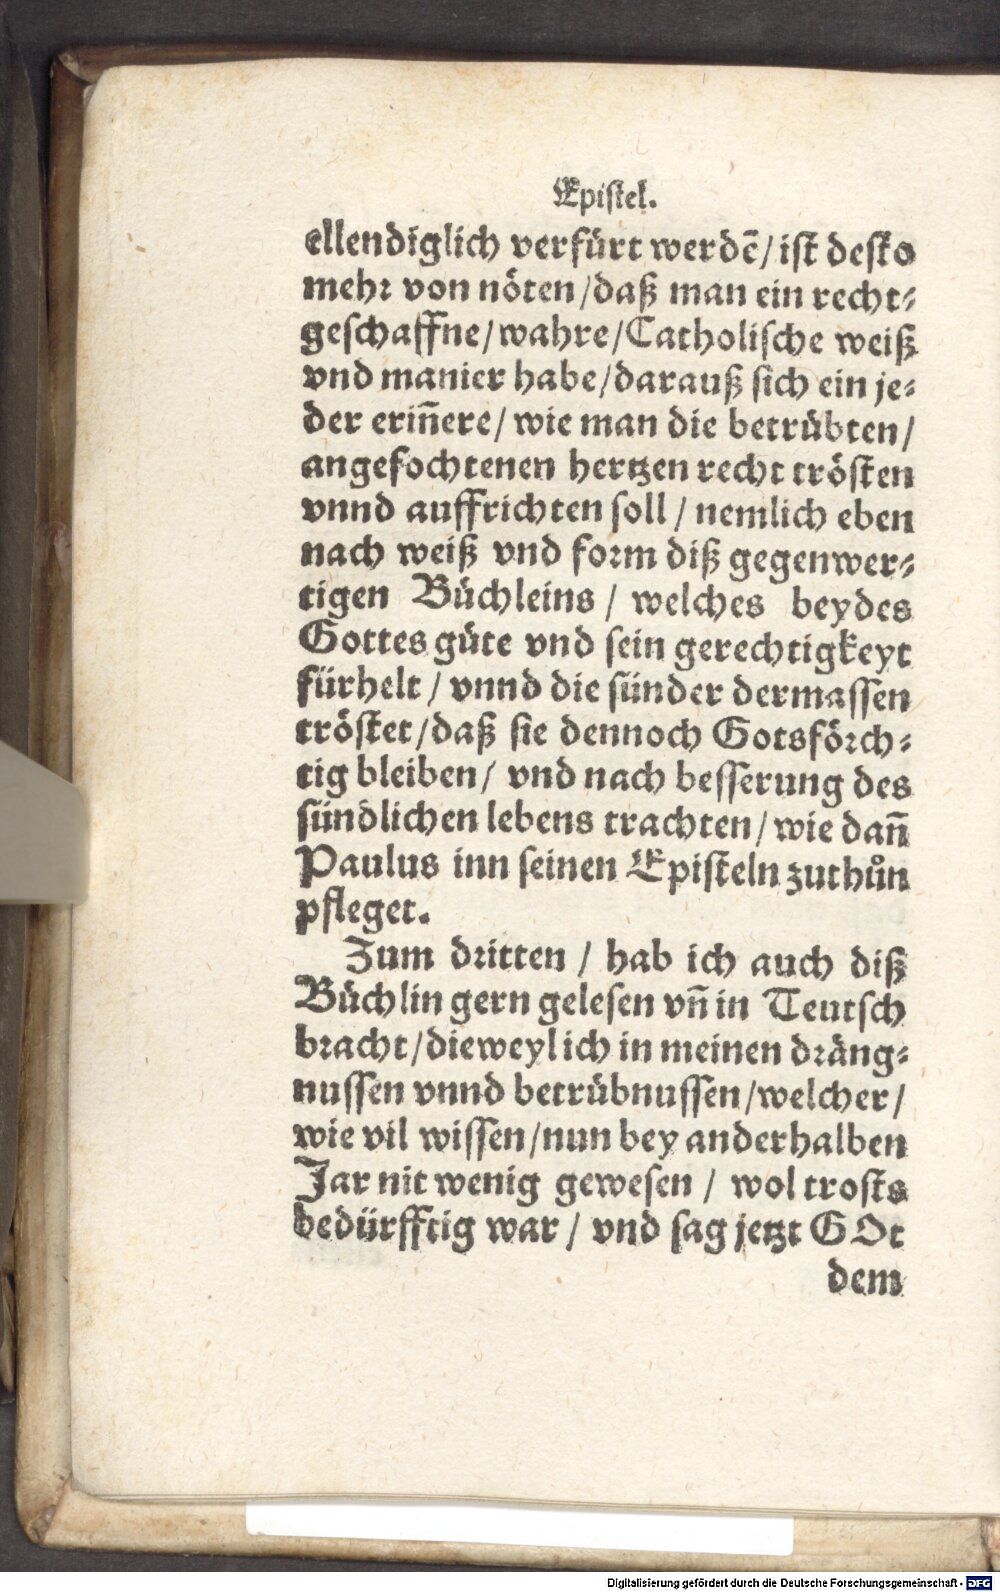 Epistel.
ellendiglich verfürt werdē/ ist desto
mehr von nöten/daß man ein recht⸗
geschaffne/wahre/Catholische weiß
vnd manier habe/darauß sich ein je⸗
der erin̄ere/ wie man die betrübten/
angefochtenen hertzen recht trösten
vnnd auffrichten soll / nemlich eben
nach weiß vnd form diß gegenwer⸗
tigen Büchleins / welches beydes
Gottes güte vnd sein gerechtigkeyt
fürhelt / vnnd die sünder dermassen
tröstet/daß sie dennoch Gotsförch⸗
tig bleiben/ vnd nach besserung des
sündlichen lebens trachten/ wie dan̄
Paulus inn seinen Episteln zuthůn
pfleget.
Zum dritten / hab ich auch diß
Büchlin gern gelesen vn̄ in Teutsch
bracht/dieweyl ich in meinen dräng⸗
nussen vnnd betrübnussen/welcher/
wie vil wissen/nun bey anderhalben
Jar nit wenig gewesen / wol trosts
bedürfftig war / vnd sag jetzt GOt
dem
Digitalisierung gefördert durch die Deutsche Forschungsgemeinschaft - DFG